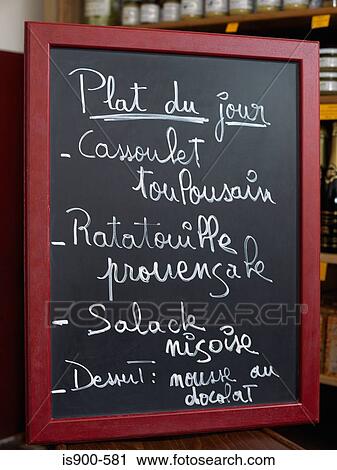 Plat du jour
- Cassoulet
toulousain
- Ratatouille
provençale
- Salade
niçoise
- Dessert: mousse au
chocolat
© Fotosearch
is900-581 www.fotosearch.com